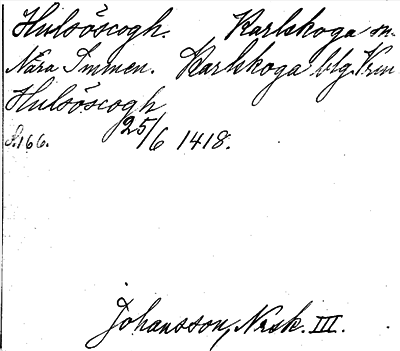 Hulsöscogh. Karlskoga sn.
Nära Immen. Karlskoga blg. Vrm
Hulsöscogh
S. 166. 25/6 1418.
Johansson, Nrsk. III.